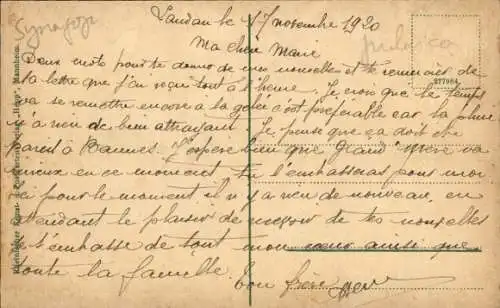 Synagoge
Landau le 17 novembre 1920
judaica
Ma chère Marie
377964
Deux mots pour te donner de mes nouvelles et te remercier de
la lettre que j'ai reçu tout à l'heure. Je crois que le temps
va se remettre encore à la gelée c'est préférable car la pluie
n'a rien de bien attrayant. Je pense que ça doit être
pareil à Rannes. J'espère bien que Grand' Mère va
mieux en ce moment. Tu l'embrasseras pour moi
ici pour le moment il n'y a rien de nouveau, en
attendant le plaisir de recevoir de tes nouvelles
t'embrasse de tout mon cœur ainsi que
toute la famille. Ton frère